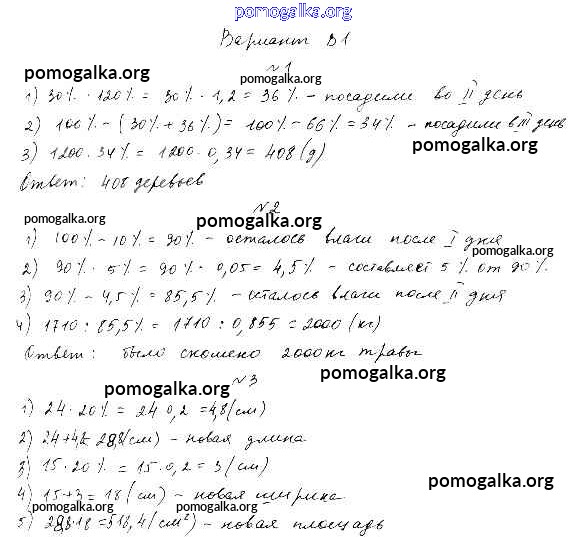 pomogalka.org
Вариант В1
№1
pomogalka.org pomogalka.org
1) 30% · 120% = 30% · 1,2 = 36% - посадили во II день
2) 100% - (30% + 36%) = 100% - 66% = 34% - посадили в III день
pomogalka.org
3) 1200 · 34% = 1200 · 0,34 = 408 (д)
Ответ: 408 деревьев
№2
pomogalka.org pomogalka.org
1) 100% - 10% = 90% - осталось влаги после I дня
pomogalka.org
2) 90% · 5% = 90% · 0,05 = 4,5% - составляет 5% от 90%.
3) 90% - 4,5% = 85,5% - осталось влаги после II дня
4) 1710 : 85,5% = 1710 : 0,855 = 2000 (кг)
Ответ: было скошено 2000 кг травы
pomogalka.org
№3
pomogalka.org
1) 24 · 20% = 24 · 0,2 = 4,8 (см)
2) 24 + 4,8 = 28,8 (см) - новая длина
3) 15 · 20% = 15 · 0,2 = 3 (см)
pomogalka.org
4) 15 + 3 = 18 (см) - новая ширина
pomogalka.org pomogalka.org
5) 28,8 · 18 = 518,4 (см²) - новая площадь